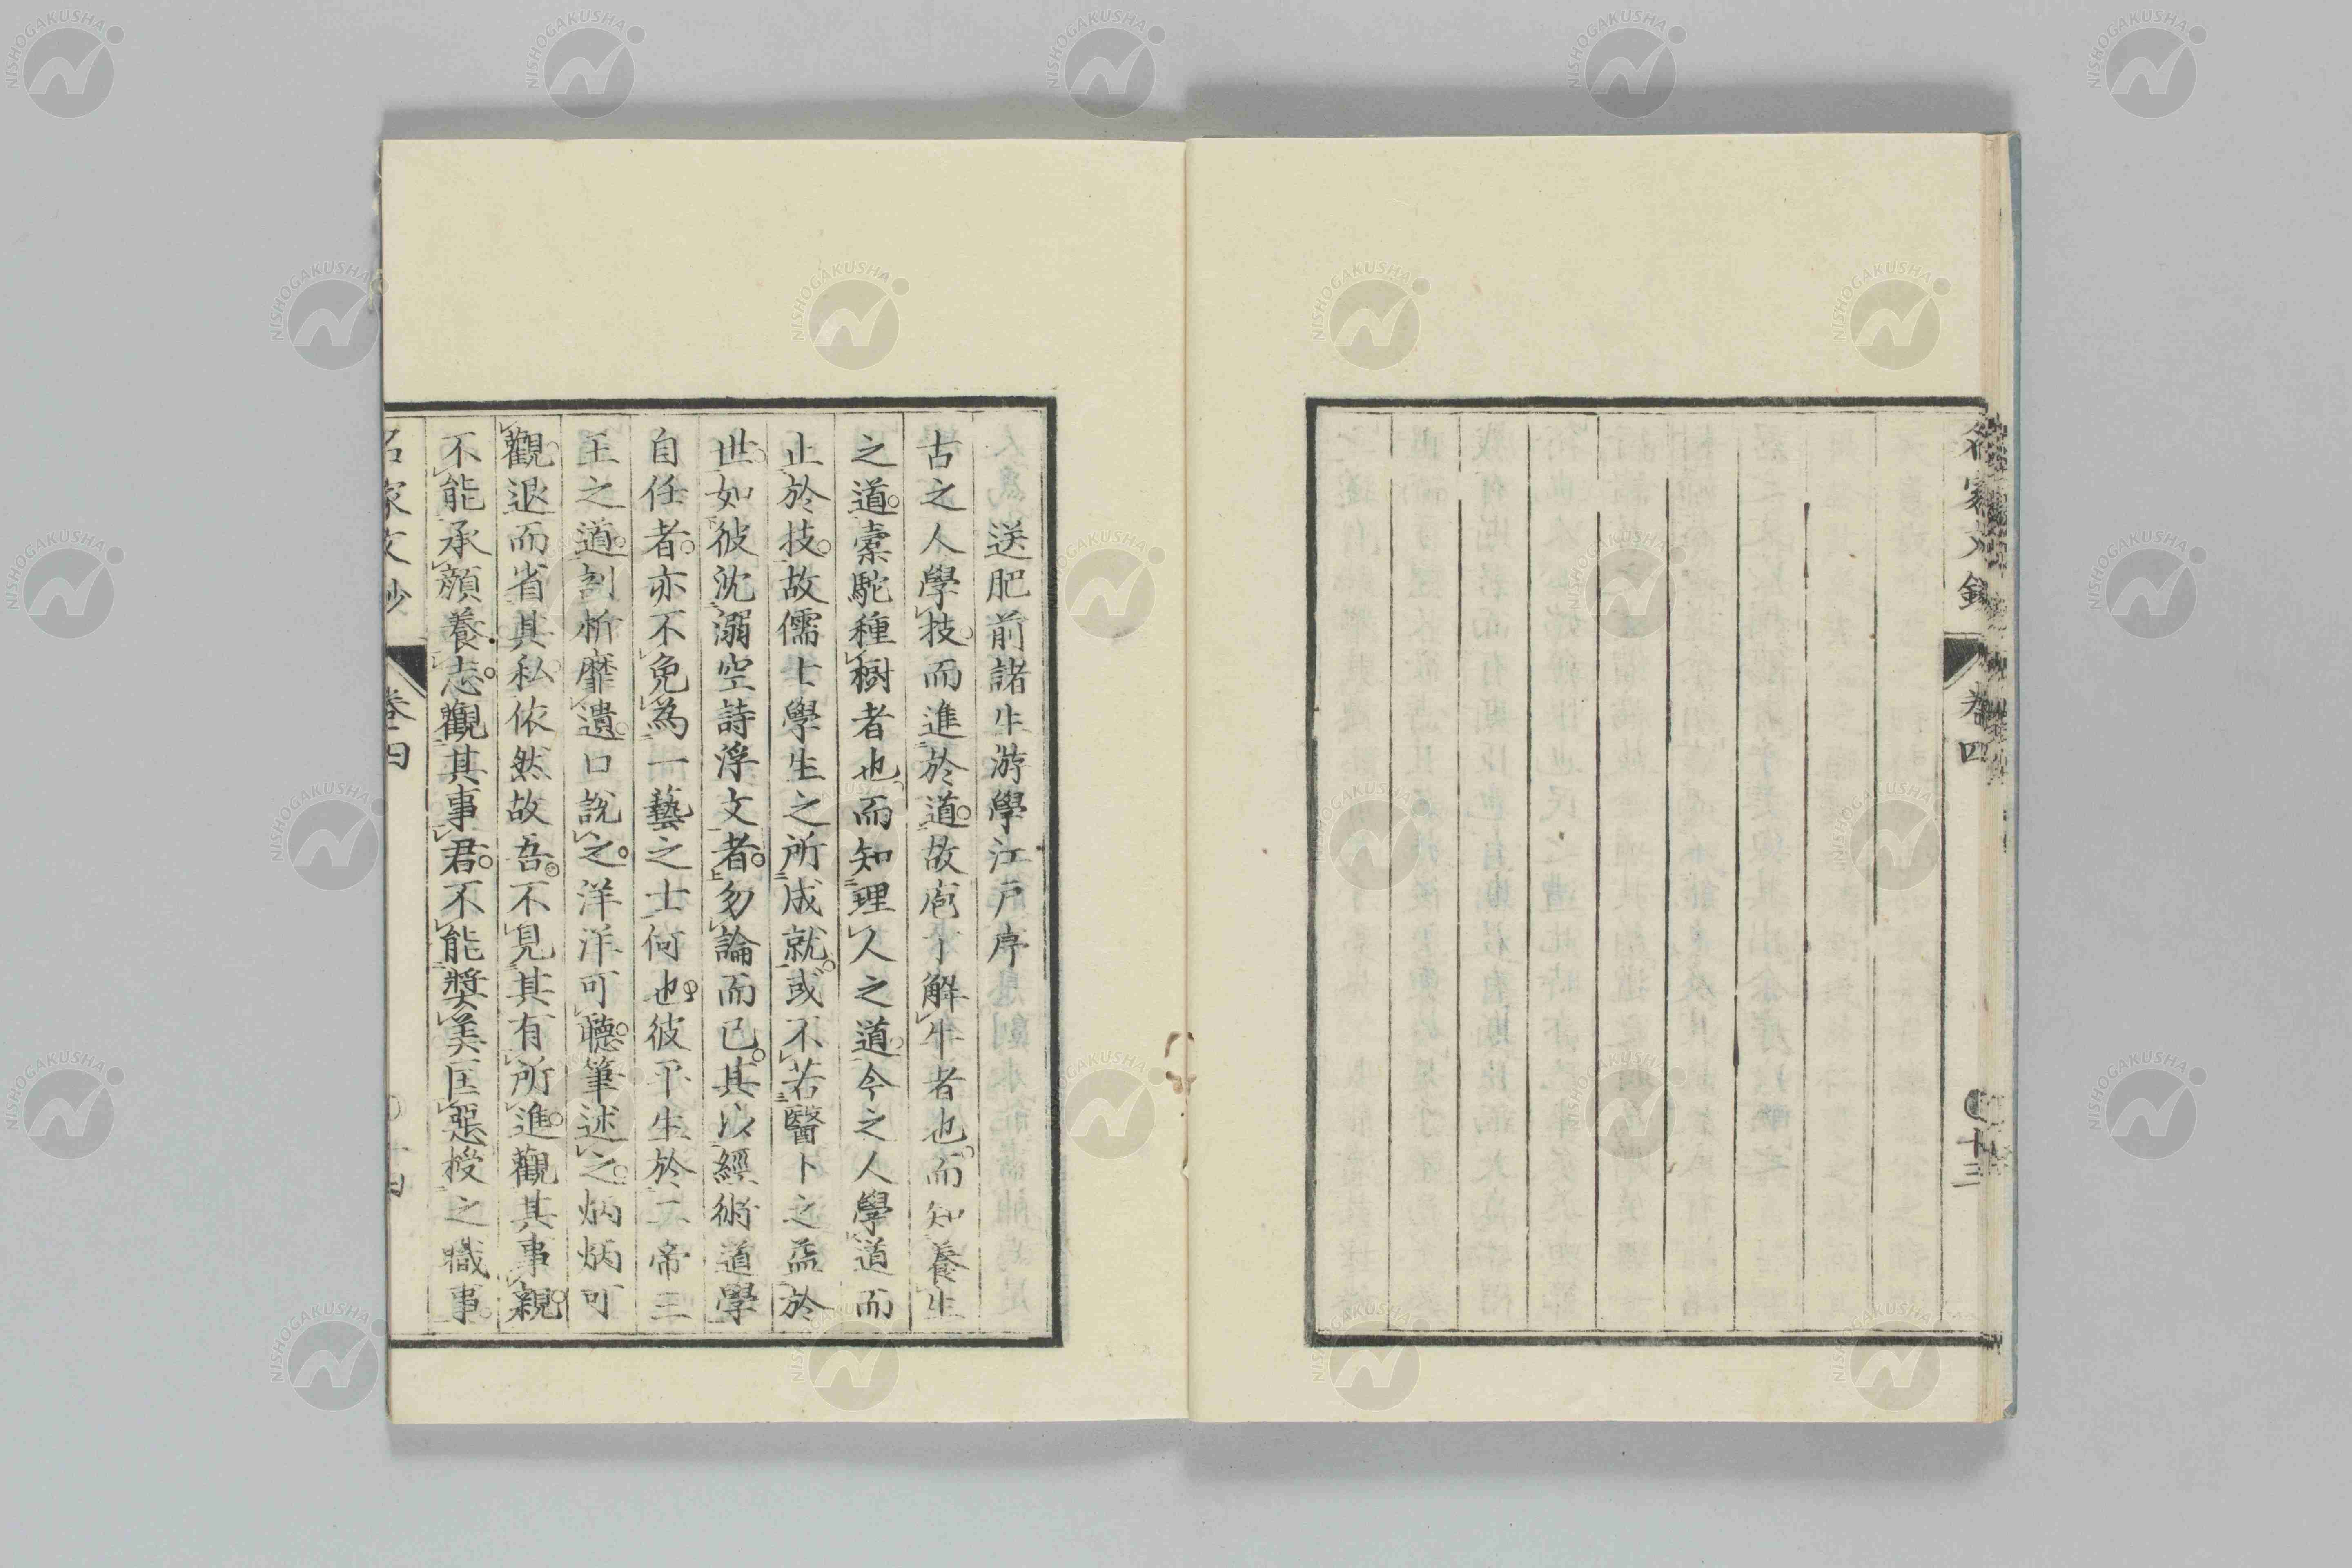 卷四
十三
送肥前諸生游學江戸序
古之人學技而進於道。故庖丁解牛者也。而知養生
之道。橐駝種樹者也。而知理人之道。今之人學道而
止於技。故儒士學生之所成就。或不若醫卜之益於
世。如彼沈溺空詩浮文者。勿論而已。其以經術道學
自任者。亦不免為一藝之士何也。彼平生於二帝三
王之道。剖析靡遺。口說之。洋洋可聽。筆述之。炳炳可
觀。退而省其私。依然故吾。不見其有所進。觀其事親。
不能承顏養志。觀其事君。不能奬美匡惡。授之職事。
名家文抄
卷四
十四
NISHOGAKUSHA